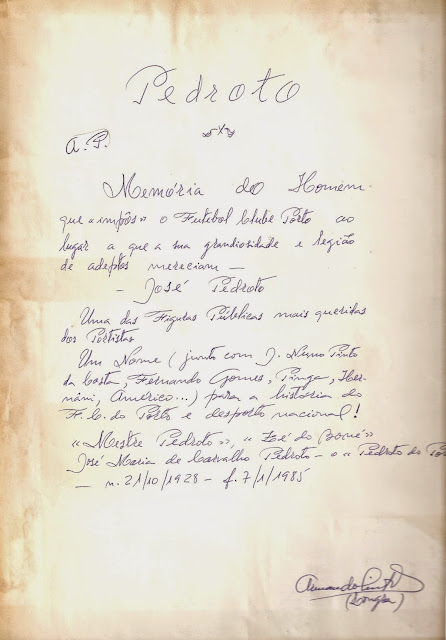 Pedroto
A. P.
Memória do Homem
que «impôs» o Futebol Clube Porto ao
lugar a que a sua grandiosidade e legião
de adeptos mereciam —
- José Pedroto
Uma das Figuras Públicas mais queridas
dos Portistas
Um Nome (junto com J. Nuno Pinto
da Costa, Fernando Gomes, Pinga, Her-
nâni, Américo...) para a história do
F. C. do Porto e desporto nacional!
«Mestre Pedroto», «Zé do Boné»
José Maria de Carvalho Pedroto - o «Pedroto do Por
— n. 21/10/1928 - f. 7/1/1985
Armando Pinto